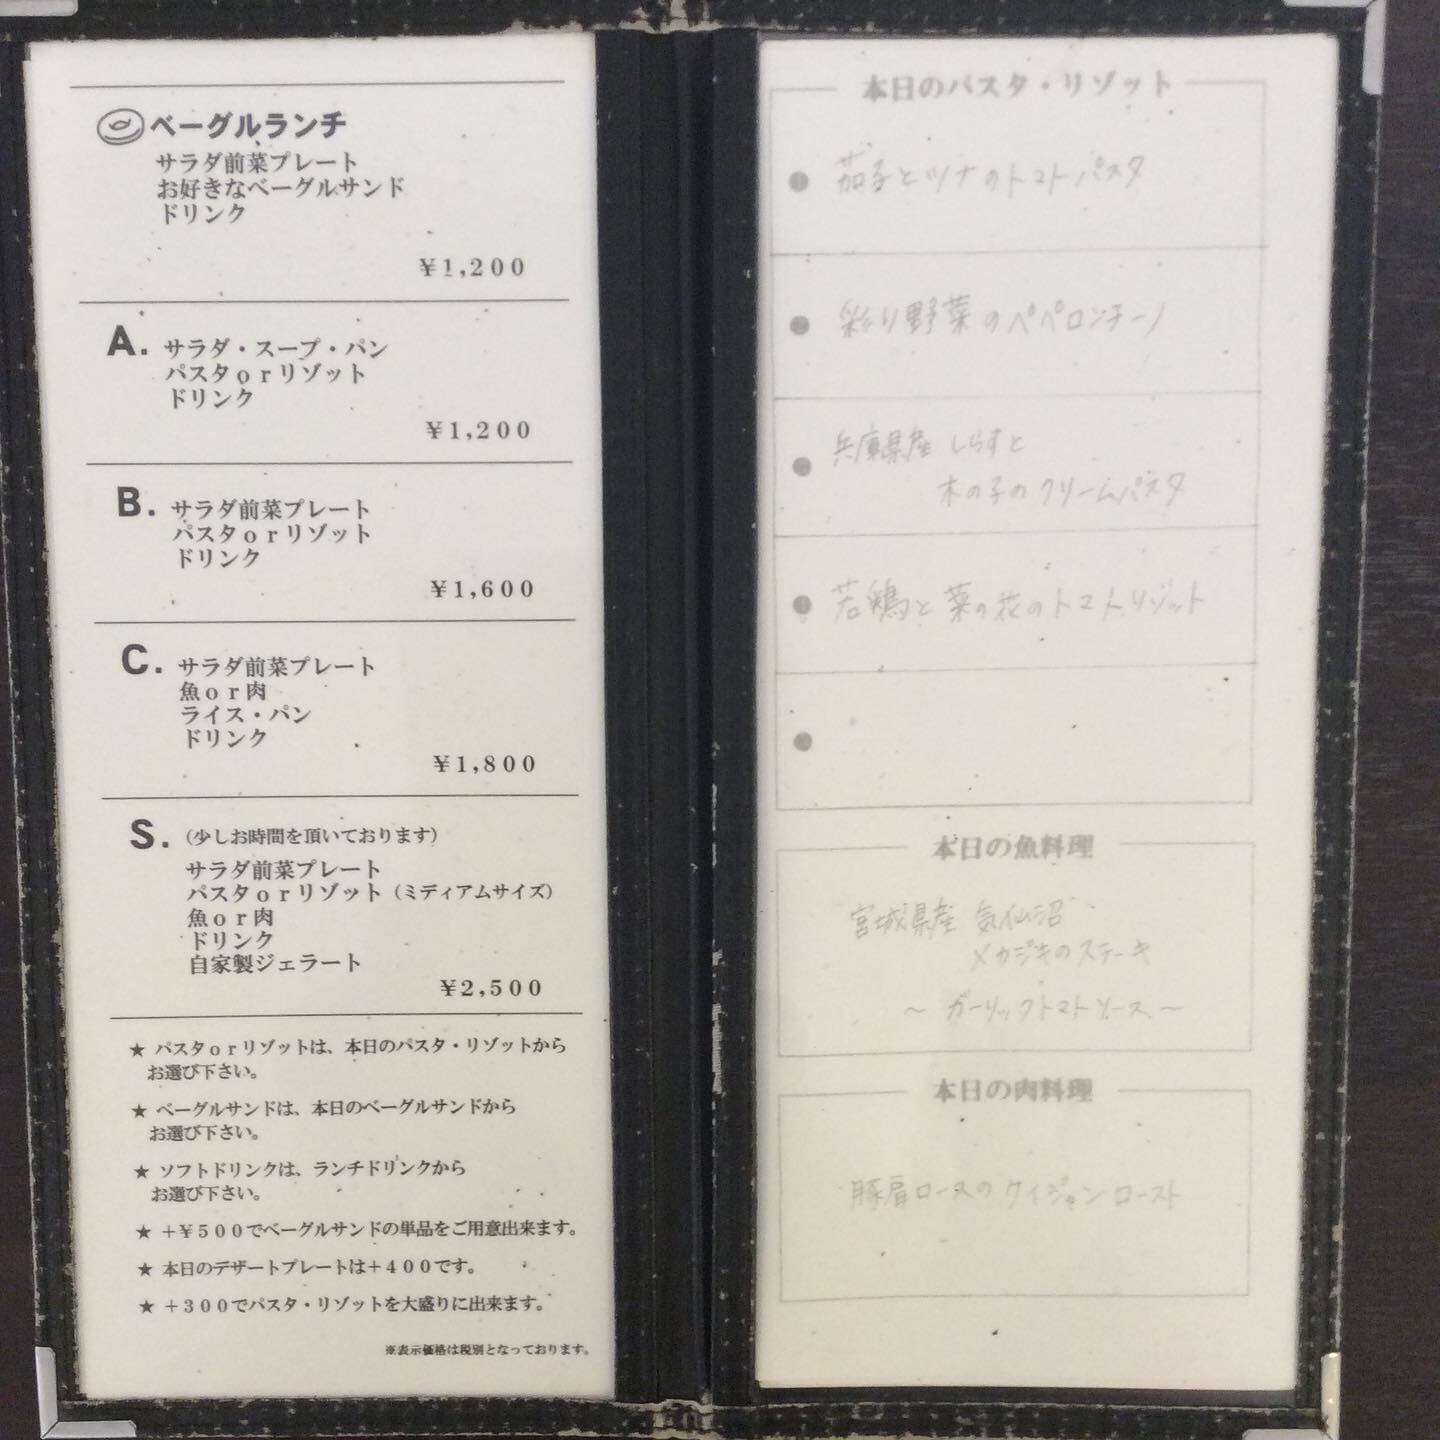 ベーグルランチ
サラダ前菜プレート
お好きなベーグルサンド
ドリンク
¥1,200
A. サラダ・スープ・パン
パスタorリゾット
ドリンク
¥1,200
B. サラダ前菜プレート
パスタorリゾット
ドリンク
¥1,600
C. サラダ前菜プレート
魚or肉
ライス・パン
ドリンク
¥1,800
S. (少しお時間を頂いております)
サラダ前菜プレート
パスタorリゾット(ミディアムサイズ)
魚or肉
ドリンク
自家製ジェラート
¥2,500
★ パスタorリゾットは、本日のパスタ・リゾットから
お選び下さい。
★ ベーグルサンドは、本日のベーグルサンドから
お選び下さい。
★ ソフトドリンクは、ランチドリンクから
お選び下さい。
★ +¥500でベーグルサンドの単品をご用意出来ます。
★ 本日のデザートプレートは+400です。
★ +300でパスタ・リゾットを大盛りに出来ます。
※表示価格は税別となっております。
本日のパスタ・リゾット
● 茄子とツナのトマトパスタ
● 彩り野菜のペペロンチーノ
● 兵庫県産 しらすと
木の子のクリームパスタ
● 若鶏と菜の花のトマトリゾット
●
本日の魚料理
宮城県産 気仙沼
メカジキのステーキ
〜 ガーリックトマトソース 〜
本日の肉料理
豚肩ロースのケイジャンロースト